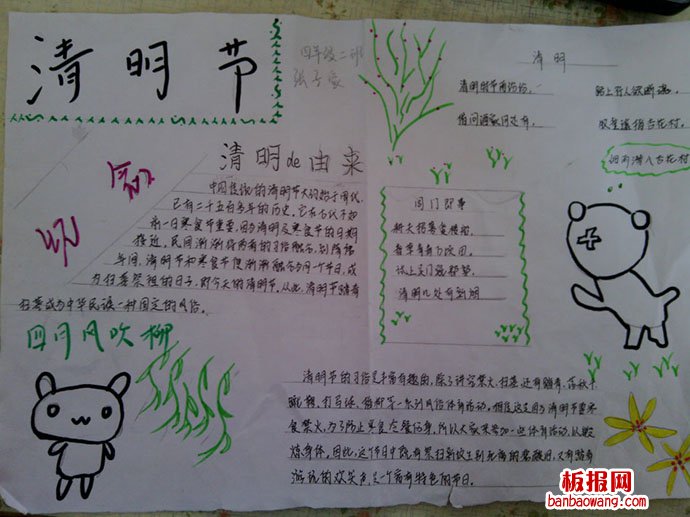 清明节
四年级二部
张子家
清明
清明时节雨纷纷。
路上行人欲断魂。
借问酒家何处有。
牧童遥指杏花村。
清明de由来
中国传统的清明节大约始于周代,
已有二千五百多年的历史。它在古代不如
前一日寒食节重要,因为清明及寒食节的日期
接近,民间渐渐将两者的习俗融合,到隋唐
年间,清明节和寒食节便渐渐融合为同一个节日,成
为扫墓祭祖的日子,即今天的清明节。从此,清明节踏青
扫墓成为中华民族一种固定的风俗。
四月风吹柳
清明节的习俗是丰富有趣的,除了讲究禁火、扫墓,还有踏青、荡秋千
蹴鞠、打马球、插柳等一系列风俗体育活动。相传这是因为清明节要寒
食禁火,为了防止寒食冷餐伤身,所以大家来参加一些体育活动,以锻
炼身体。因此,这个节日中既有祭扫新坟生别死离的悲酸泪,又有踏青
游玩的欢笑声,是一个富有特色的节日。
板报网
banbaowang.com